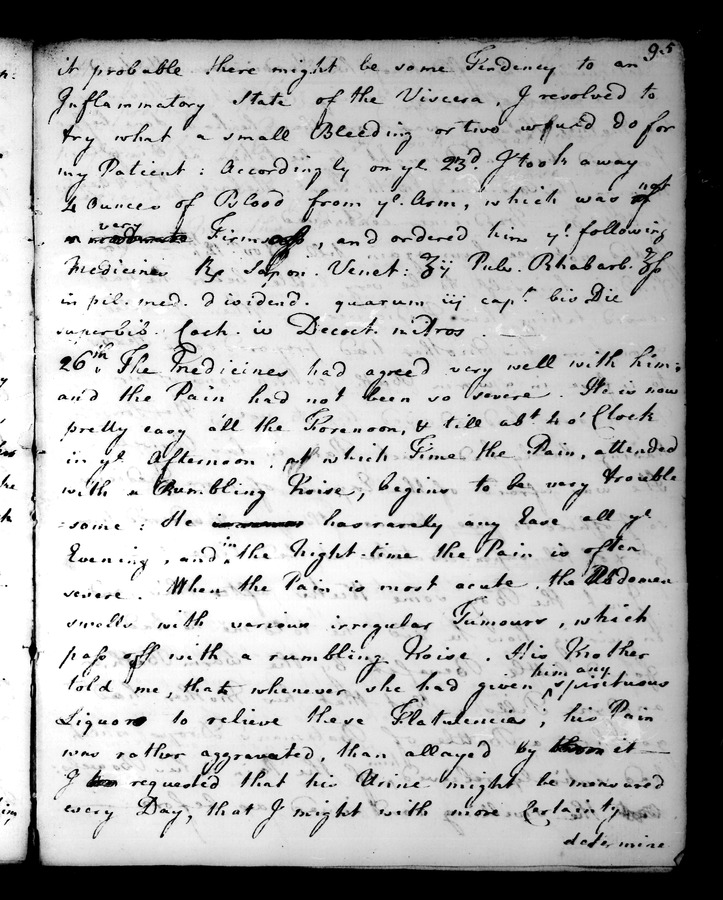 95
it probable there might be some Tendency to an
Inflammatory State of the Viscera, I resolved to
try what a small Bleeding or two would do for
my Patient : Accordingly on ye. 23d. I took away
4 Ounces of Blood from ye. Arm, which was not
very Firm, and ordered him ye. following
Medicines Rx Sapon. Venet: ʒij Pulv. Rhabarb. ʒſs
in pil. med. dividend. quarum iij capt. bis Die
superbib. Coch. iv Decoct. nitros.
26th. The Medicines had agreed very well with him;
and the Pain had not been so severe. He is now
pretty easy all the Forenoon, & till abt. 4 o'Clock
in ye. Afternoon, at which Time the Pain, attended
with a Rumbling Noise, begins to be very trouble
-some : He has rarely any Ease all ye
Evening, and in the Night-time the Pain is often
severe. When the Pain is most acute, the Abdomen
swells with various irregular Tumours, which
pass off with a rumbling Noise. His Mother
told me, that whenever she had given him any spirituous
Liquors to relieve these Flatulencies, his Pain
was rather aggravated, than allayed by it —
I requested that his Urine might be measured
every Day, that I might with more Certainty
determine